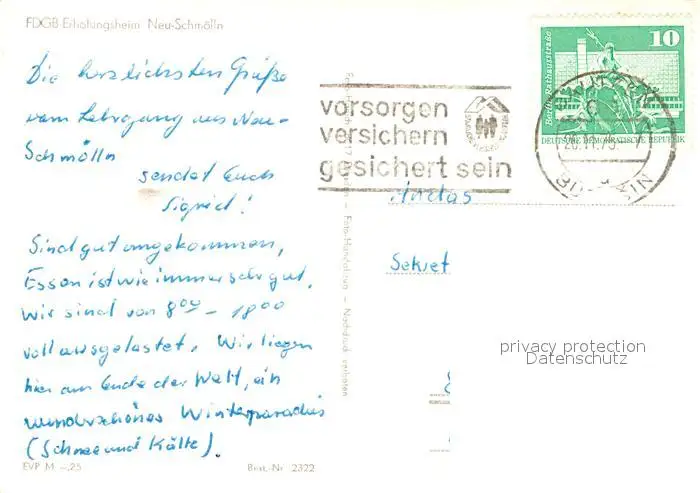 FDGB-Erholungsheim Neu-Schmölln
Die herzlichsten Grüße
vom Lehrgang aus Neu-
Schmölln
sendet Euch
Sigrid!
Sind gut angekommen,
Essen ist wie immer sehr gut.
Wir sind von 8.00 – 18.00
voll ausgelastet. Wir liegen
hier am Ende der Welt, ein
wunderschönes Winterparadies
(Schnee und Kälte).
EVP M –,25
Best.-Nr. 2322
Foto-Handabzug – Nachdruck verboten
vorsorgen
versichern
gesichert sein
10
Berlin, Rathausstraße
DEUTSCHE DEMOKRATISCHE REPUBLIK
An das
Sekret
privacy protection
Datenschutz